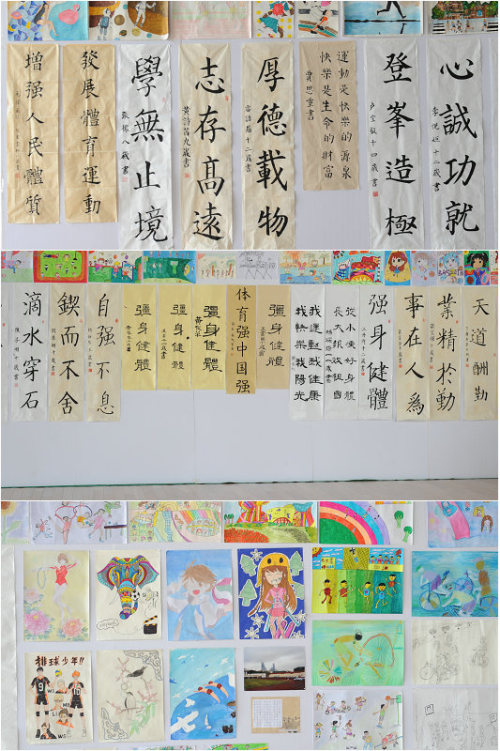 心誠功就
登峯造極
運動是快樂的源泉
快樂是生命的財富
賈思童書
厚德載物
志存高遠
學無止境
發展體育運動
增强人民體質
天道酬勤
業精於勤
事在人為
强身健體
從小練好身體
長大報效祖國
我運動我健康
我快樂我陽光
彊身健體
体育强中国强
彊身健體
彊身健體
彊身健體
自强不息
鍥而不舍
滴水穿石
排球少年!!